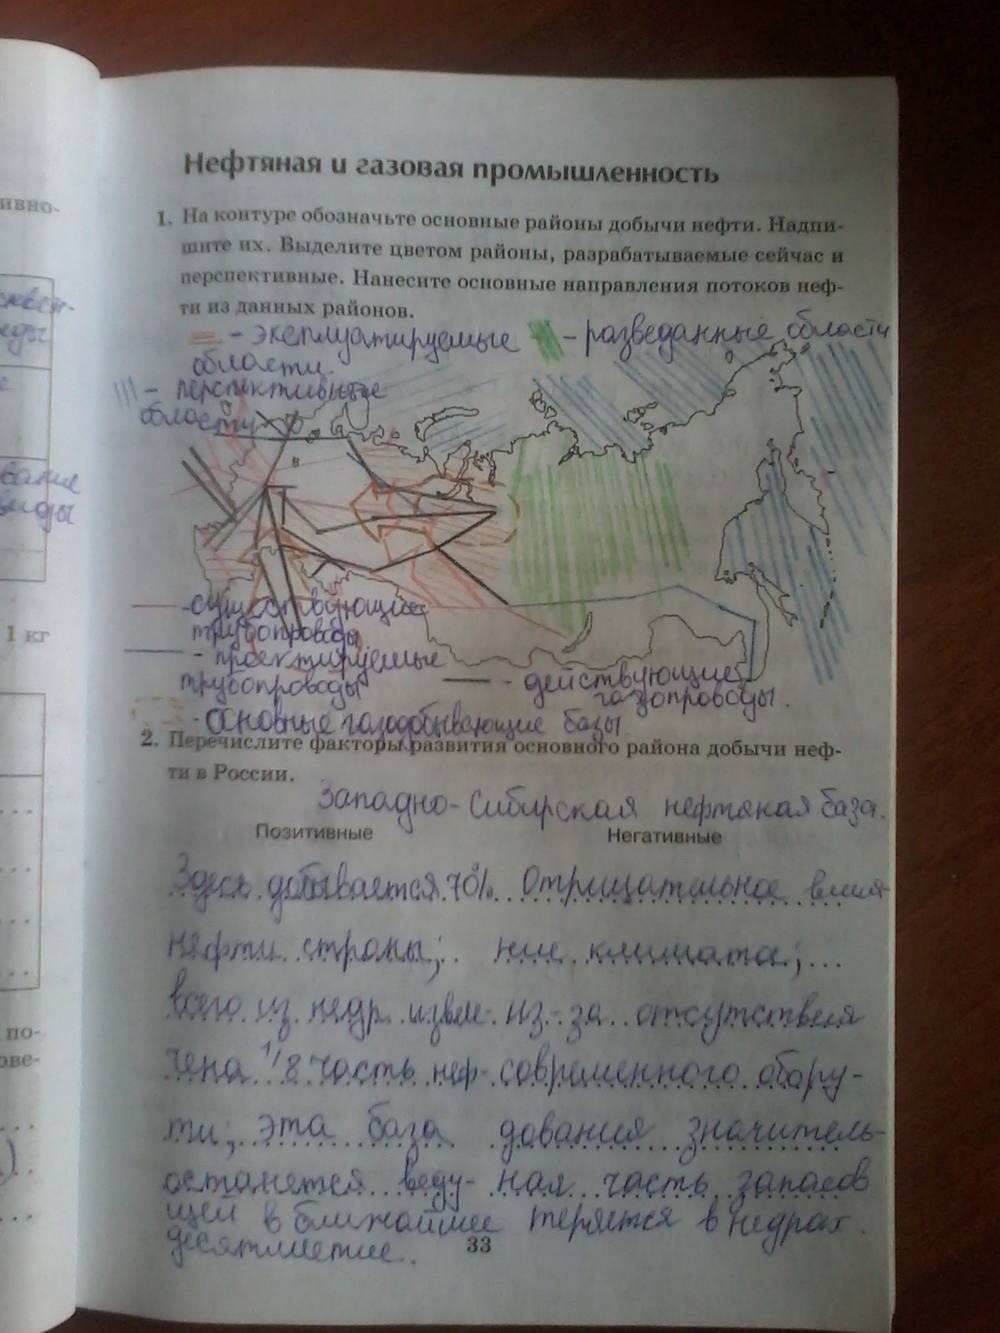 Нефтяная и газовая промышленность
1. На контуре обозначьте основные районы добычи нефти. Надпи-
шите их. Выделите цветом районы, разрабатываемые сейчас и
перспективные. Нанесите основные направления потоков неф-
ти из данных районов.
- эксплуатируемые
области.
- разведанные области
- перспективные
области
в
-существующие
трубопроводы
- проектируемые
трубопроводы
- действующие
газопроводы.
- основные газодобывающие базы.
2. Перечислите факторы развития основного района добычи неф-
ти в России.
Западно-Сибирская нефтяная база.
Позитивные
Здесь добывается 70%
нефти страны;
всего из недр извле-
чена 1/8 часть неф-
ти; эта база
останется веду-
щей в ближайшее
десятилетие.
Негативные
Отрицательное влия-
ние климата;
из-за отсутствия
современного обору-
дования значитель-
ная часть запасов
теряется в недрах.
33
ивно-
1 кг
по-
ове-